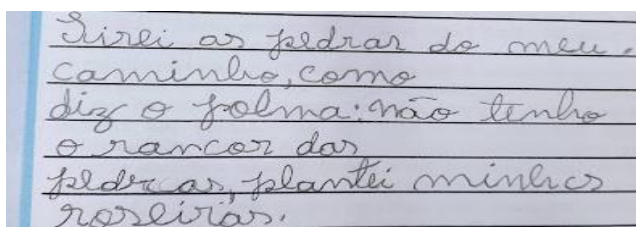 Tirei as pedras do meu.
caminho, como
diz o polma: não tenho
o rancor das
pedrcas, plantei minhcs
roseiras.